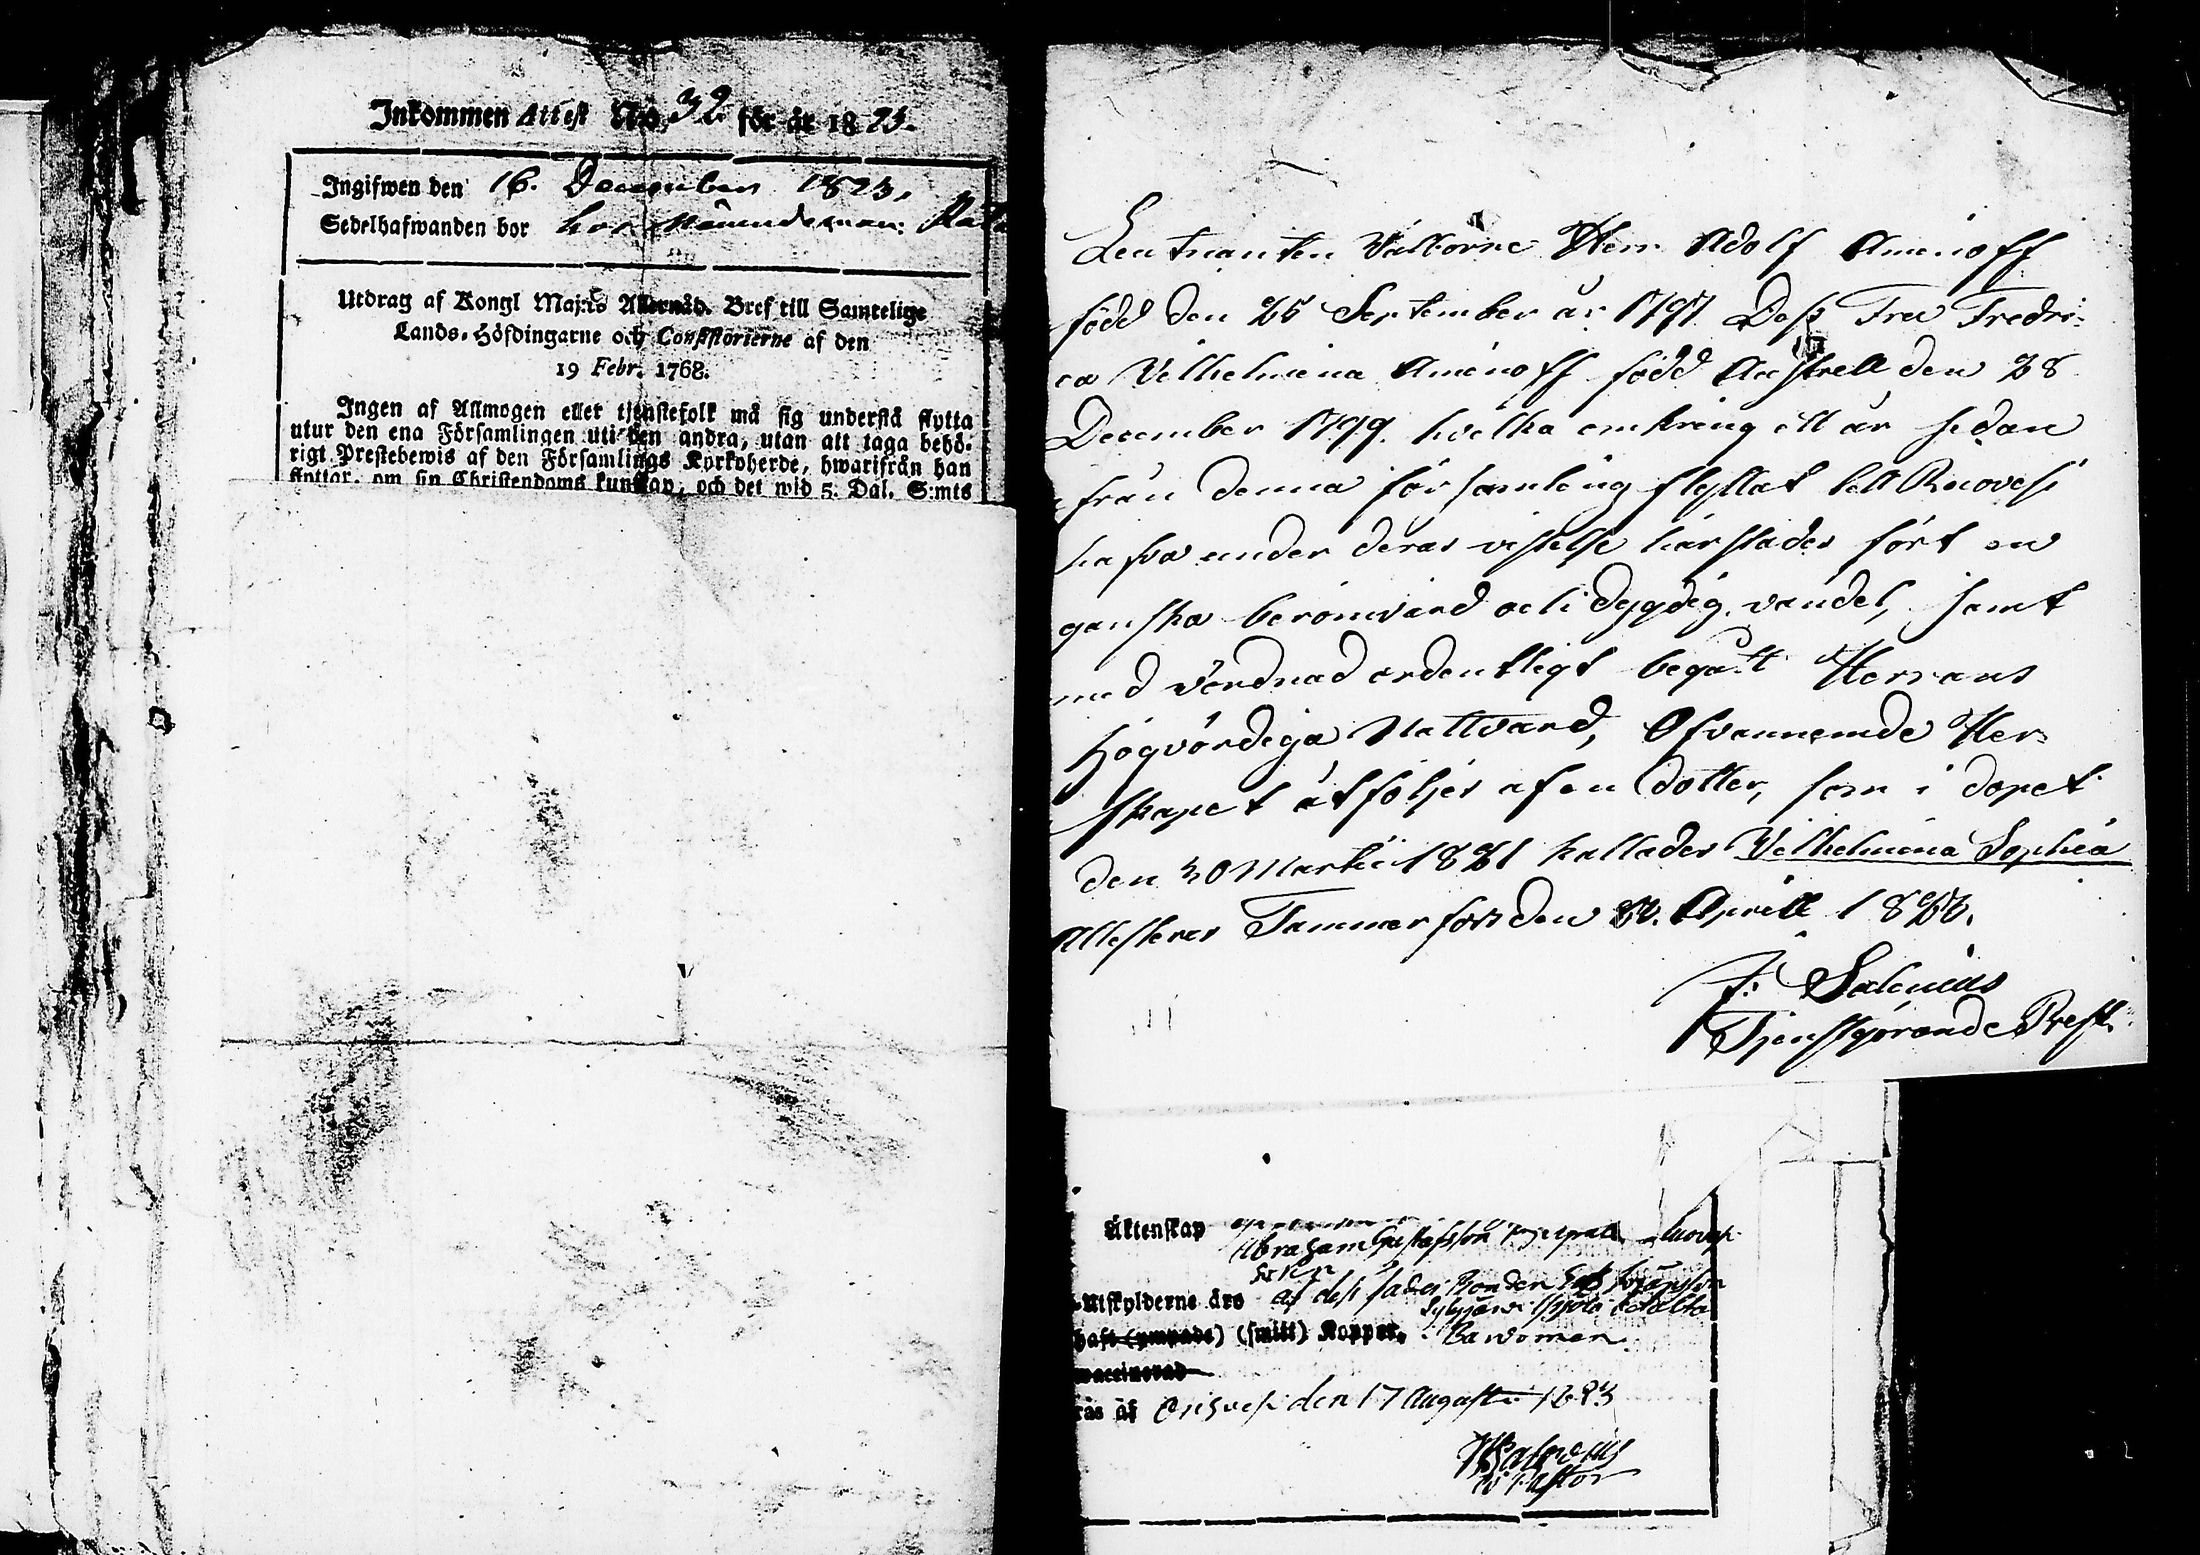 Inkommen Attest No. 32 för år 1823.
Ingifwen den 16. December 1823.
Sedelhafwanden bor hos
Utdrag af Kongl Maj:ts Allernåd. Bref till Samtelige
Lands-Höfdingarne och Consistorierne af den
19 Febr. 1768.
Ingen af Allmogen eller tjenstefolk må sig understå flytta
utur den ena Församlingen uti den andra, utan att taga behö-
rigt Prestebewis af den Församlings Kyrkoherde, hwarifrån han
flyttar, om sin Christendoms kunskap, och det wid 5. Dal. S:mts
Leutnanten Välborne Herr Adolf Aminoff
född den 25 September år 1797. Dess Fru Fredri-
ca Vilhelmina Aminoff född den 28
December 1799. hvilka omkring ett år sedan
från denna församling flyttat till Ruovesi
hafva under deras vistelse härstädes fört en
ganska berömvärd och dygdig vandel, samt
med vördnad ordentligt begått Herrans
Högvördiga Nattvard, Ofvannemde Her-
skapet åtföljes af en dotter, som i dopet
den 30 Martii 1821 kallades Vilhelmina Sophia
Attesteras Tammerfors den Aprill
F: Salenius
Tjenstgörande Prest.
Äktenskap
Abraham Gustafsson Ruovesi
Sokn
Utskylderne äro af dess fader Bonden
haft (ympade) (smitt) Koppor.
vaccinerad
ras af Orihvesi den 17 Augusti 1823
V: Pastor